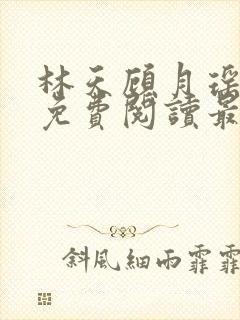 林天顾月瑶
免費閱讀最
斜風細雨霏霏